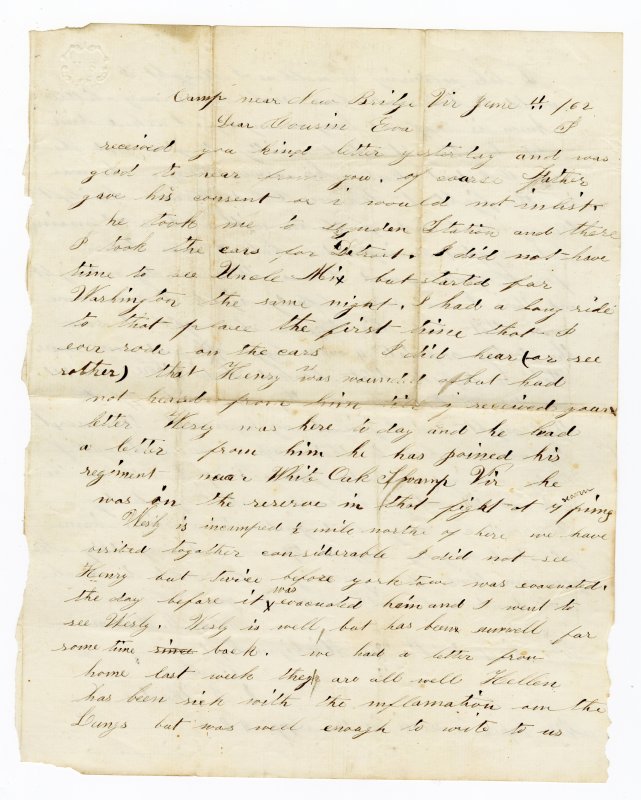 Camp near New Bridge Vir June 11 /62
Dear Cousin Eva I
received you kind letter yesterday and was
glad to hear from you. of coarse father
gave his consent or i would not inlist
he took me to Lynden Station and there
I took the cars for Detroit. I did not have
time to see Uncle Mix but started for
Washington the same night. I had a long ride
to that place the first time that I
ever rode on the cars I did hear (or see
rother) that Henry was wounded but had
not heard from him till I received your
letter Wesly was here to day and he had
a letter from him he has joined his
regiment near White Oak Swamp Vir he
was in the reserve in that fight at 7 pines
Wesly is incamped ½ mile northe of here we have
visited togather considerable I did not see
Henry but twice before york town was evacuated.
the day before it was evacuated him and I went to
see Wesly. Wesly is well, but has been unwell for
some time since back. we had a letter from
home last week they are all well Hellen
has been sick with the inflamation on the
Lungs but was well enough to write to us